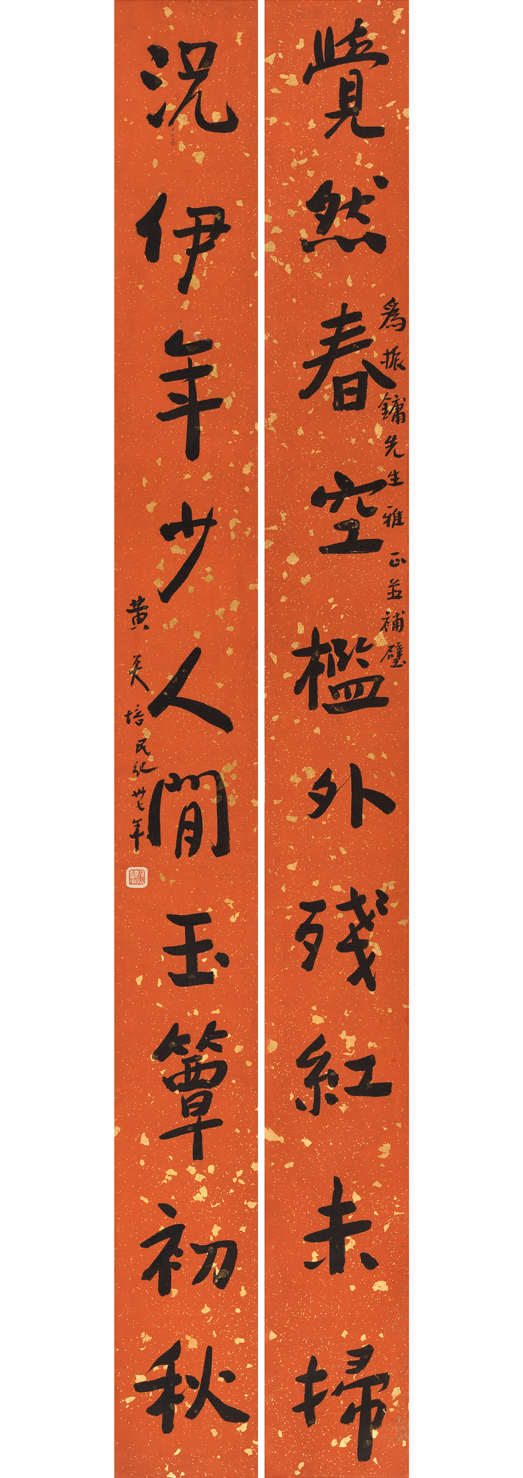 爲振鏞先生雅正並補壁
覺然春空檻外殘紅未掃
況伊年少人閒玉簟初秋
黃炎培民紀卅七年